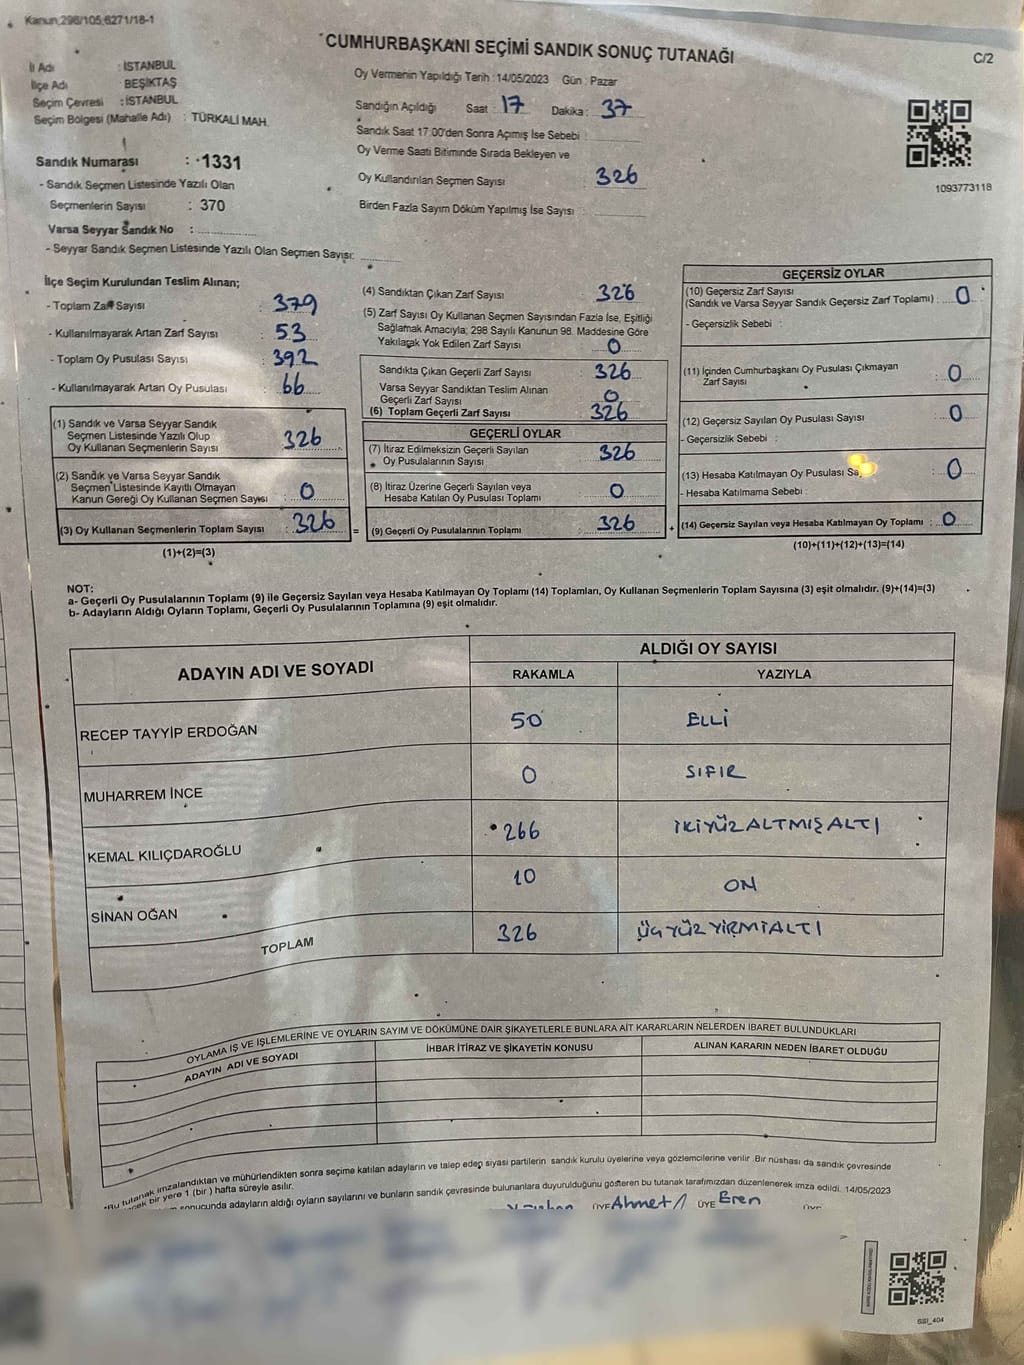 Kanun,298/105,6271/18-1
CUMHURBAŞKANI SEÇİMİ SANDIK SONUÇ TUTANAĞI
C/2
İl Adı : İSTANBUL
İlçe Adı : BEŞİKTAŞ
Seçim Çevresi : İSTANBUL
Seçim Bölgesi (Mahalle Adı) : TÜRKALİ MAH.
Oy Vermenin Yapıldığı Tarih : 14/05/2023 Gün : Pazar
Sandığın Açıldığı Saat : 17 Dakika : 37
Sandık Saat 17.00'den Sonra Açımış İse Sebebi :
Oy Verme Saati Bitiminde Sırada Bekleyen ve
Oy Kullandırılan Seçmen Sayısı 326
Birden Fazla Sayım Döküm Yapılmış İse Sayısı :
1093773118
Sandık Numarası : 1331
- Sandık Seçmen Listesinde Yazılı Olan
Seçmenlerin Sayısı : 370
Varsa Seyyar Sandık No :
- Seyyar Sandık Seçmen Listesinde Yazılı Olan Seçmen Sayısı:
İlçe Seçim Kurulundan Teslim Alınan;
- Toplam Zarf Sayısı : 379
- Kullanılmayarak Artan Zarf Sayısı : 53
- Toplam Oy Pusulası Sayısı : 392
- Kullanılmayarak Artan Oy Pusulası : 66
(1) Sandık ve Varsa Seyyar Sandık
Seçmen Listesinde Yazılı Olup
Oy Kullanan Seçmenlerin Sayısı : 326
(2) Sandık ve Varsa Seyyar Sandık
Seçmen Listesinde Kayıtlı Olmayan
Kanun Gereği Oy Kullanan Seçmen Sayısı : 0
(3) Oy Kullanan Seçmenlerin Toplam Sayısı : 326
(1)+(2)=(3)
(4) Sandıktan Çıkan Zarf Sayısı : 326
(5) Zarf Sayısı Oy Kullanan Seçmen Sayısından Fazla İse, Eşitliği
Sağlamak Amacıyla; 298 Sayılı Kanunun 98. Maddesine Göre
Yakılacak Yok Edilen Zarf Sayısı : 0
Sandıkta Çıkan Geçerli Zarf Sayısı : 326
Varsa Seyyar Sandıktan Teslim Alınan
Geçerli Zarf Sayısı : 0
(6) Toplam Geçerli Zarf Sayısı : 326
GEÇERLİ OYLAR
(7) İtiraz Edilmeksizin Geçerli Sayılan
Oy Pusulalarının Sayısı : 326
(8) İtiraz Üzerine Geçerli Sayılan veya
Hesaba Katılan Oy Pusulası Toplamı : 0
= (9) Geçerli Oy Pusulalarının Toplamı : 326 +
GEÇERSİZ OYLAR
(10) Geçersiz Zarf Sayısı
(Sandık ve Varsa Seyyar Sandık Geçersiz Zarf Toplamı) : 0
- Geçersizlik Sebebi :
(11) İçinden Cumhurbaşkanı Oy Pusulası Çıkmayan
Zarf Sayısı : 0
(12) Geçersiz Sayılan Oy Pusulası Sayısı : 0
- Geçersizlik Sebebi :
(13) Hesaba Katılmayan Oy Pusulası Sa 0
- Hesaba Katılmama Sebebi :
(14) Geçersiz Sayılan veya Hesaba Katılmayan Oy Toplamı : 0
(10)+(11)+(12)+(13)=(14)
NOT:
a- Geçerli Oy Pusulalarının Toplamı (9) ile Geçersiz Sayılan veya Hesaba Katılmayan Oy Toplamı (14) Toplamları, Oy Kullanan Seçmenlerin Toplam Sayısına (3) eşit olmalıdır. (9)+(14)=(3)
b- Adayların Aldığı Oyların Toplamı, Geçerli Oy Pusulalarının Toplamına (9) eşit olmalıdır.
ADAYIN ADI VE SOYADI ALDIĞI OY SAYISI
RAKAMLA YAZIYLA
RECEP TAYYİP ERDOĞAN 50 ELLİ
MUHARREM İNCE 0 SIFIR
KEMAL KILIÇDAROĞLU 266 İKİYÜZALTMIŞALTI
SİNAN OĞAN 10 ON
TOPLAM 326 ÜÇYÜZYİRMİALTI
OYLAMA İŞ VE İŞLEMLERİNE VE OYLARIN SAYIM VE DÖKÜMÜNE DAİR ŞİKAYETLERLE BUNLARA AİT KARARLARIN NELERDEN İBARET BULUNDUKLARI
ADAYIN ADI VE SOYADI İHBAR İTİRAZ VE ŞİKAYETİN KONUSU ALINAN KARARIN NEDEN İBARET OLDUĞU
*Bu tutanak imzalandıktan ve mühürlendikten sonra seçime katılan adayların ve talep eden siyasi partilerin sandık kurulu üyelerine veya gözlemcilerine verilir. Bir nüshası da sandık çevresinde
bir yere 1 (bir) hafta süreyle asılır.
sonucunda adayların aldığı oyların sayılarını ve bunların sandık çevresinde bulunanlara duyurulduğunu gösteren bu tutanak tarafımızdan düzenlenerek imza edildi. 14/05/2023
ÜYE Ahmet ÜYE Eren ÜYE
SSI_404